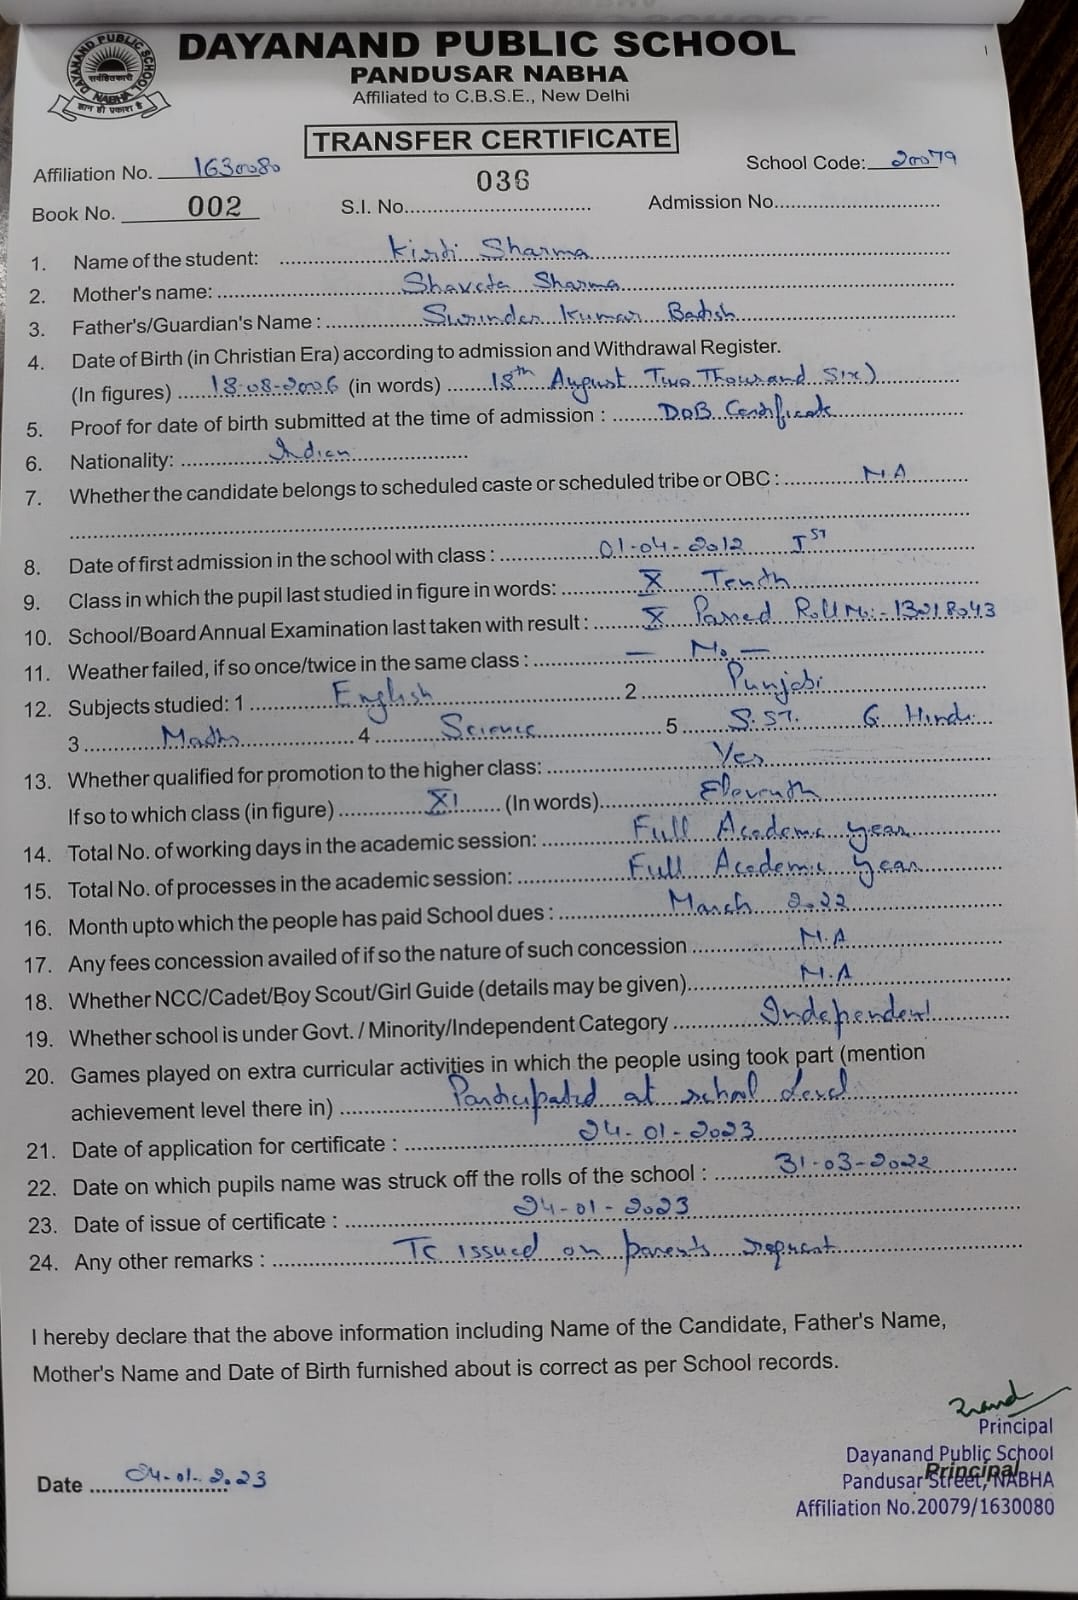 DAYANAND PUBLIC SCHOOL
PANDUSAR NABHA
Affiliated to C.B.S.E., New Delhi
DAYANAND PUBLIC SCHOOL
NABHA
ज्ञान ही प्रकाश है
TRANSFER CERTIFICATE
Affiliation No. 1630080 School Code: 20079
Book No. 002 S.I. No. 036 Admission No.
1. Name of the student: Kirti Sharma
2. Mother's name: Shaveta Sharma
3. Father's/Guardian's Name : Surinder Kumar Batish
4. Date of Birth (in Christian Era) according to admission and Withdrawal Register.
(In figures) 18-08-2006 (in words) 18th August Two Thousand Six)
5. Proof for date of birth submitted at the time of admission : DOB Certificate
6. Nationality: Indian
7. Whether the candidate belongs to scheduled caste or scheduled tribe or OBC : N.A
8. Date of first admission in the school with class : 01-04-2012 IST
9. Class in which the pupil last studied in figure in words: X Tenth
10. School/Board Annual Examination last taken with result : X Passed Roll No:- 13218043
11. Weather failed, if so once/twice in the same class : — No —
12. Subjects studied: 1 English 2 Punjabi
3 Maths 4 Science 5 S.ST. 6. Hindi
13. Whether qualified for promotion to the higher class: Yes
If so to which class (in figure) XI (In words) Eleventh
14. Total No. of working days in the academic session: Full Academic year
15. Total No. of processes in the academic session: Full Academic year
16. Month upto which the people has paid School dues : March 2022
17. Any fees concession availed of if so the nature of such concession N.A
18. Whether NCC/Cadet/Boy Scout/Girl Guide (details may be given) N.A
19. Whether school is under Govt. / Minority/Independent Category Independent
20. Games played on extra curricular activities in which the people using took part (mention
achievement level there in) Participated at school level
21. Date of application for certificate : 24-01-2023
22. Date on which pupils name was struck off the rolls of the school : 31-03-2022
23. Date of issue of certificate : 24-01-2023
24. Any other remarks : TC issued on parents request
I hereby declare that the above information including Name of the Candidate, Father's Name,
Mother's Name and Date of Birth furnished about is correct as per School records.
Principal
Dayanand Public School
Principal
Pandusar Street, NABHA
Affiliation No.20079/1630080
Date 24-01-2023